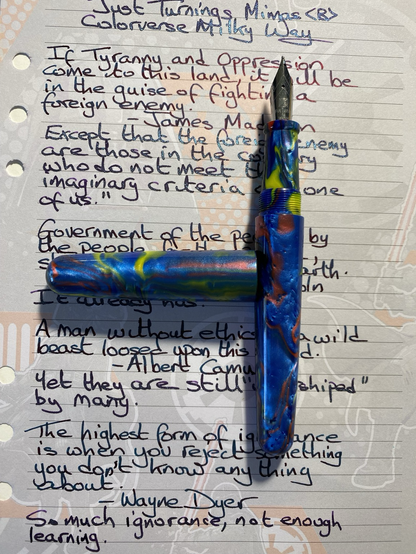 Just Turnings Mimas <B>
Colorverse Milky Way
If Tyranny and Oppression
come to this land, it will be
in the guise of fighting a
foreign enemy.
- James Mad n
Except that the foreign enemy
are those in the co ry
who do not meet th
imaginary criteria " one
of us."
Government of the pe by
the people
s arth.
oln
It already has.
A man without ethics a wild
beast loosed upon this d.
- Albert Camu
Yet they are still "w shiped"
by many.
The highest form of ig ance
is when you reject something
you don't know anything
about.
- Wayne Dyer
So much ignorance, not enough
learning.